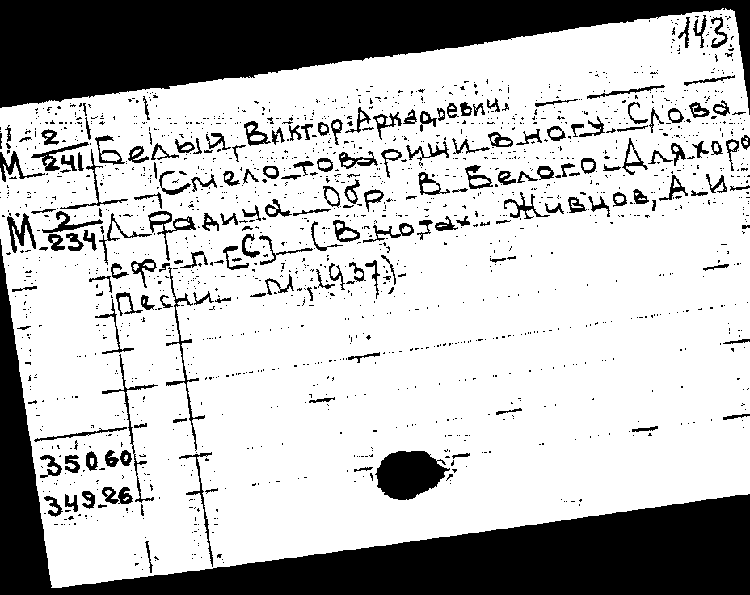 143
М 2/241 Белый, Виктор Аркадьевич.
Смело товарищи в ногу Слова
М 2/234 Л. Радина Обр В Белого. Для хора
с ф-п [С]. (В нотах: Живцов, А. И
Песни. М, 1937)
35060
34926